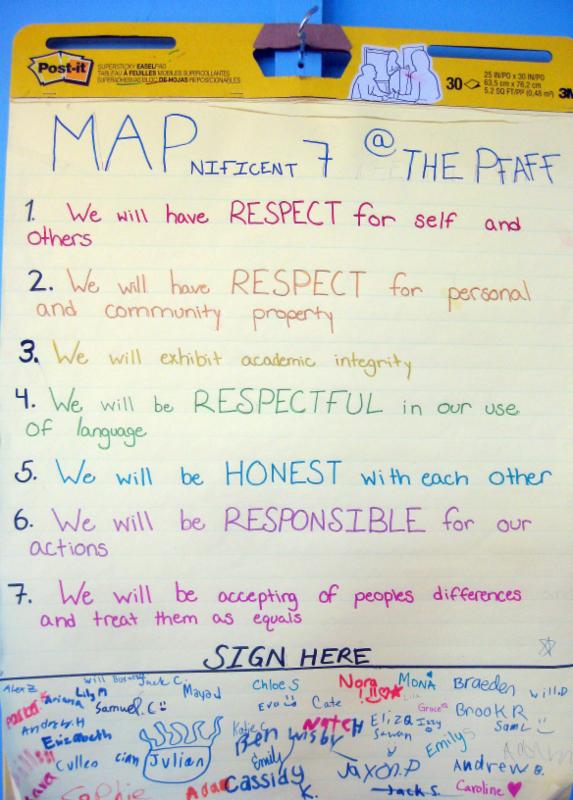 Post-it
SUPERSTICKY EASEL PAD
TABLEAU À FEUILLES MOBILES SUPERCOLLANTES
SUPERADHESIVAS BLOC DE HOJAS REPOSICIONABLES
30
25 IN/PO x 30 IN/PO
63,5 cm x 76,2 cm
5.2 SQ FT/PP (0,48 m²)
3M
MAPNIFICENT 7 @ THE PFAFF
1. We will have RESPECT for self and
others
2. We will have RESPECT for personal
and community property
3. We will exhibit academic integrity
4. We will be RESPECTFUL in our use
of language
5. We will be HONEST with each other
6. We will be RESPONSIBLE for our
actions
7. We will be accepting of peoples differences
and treat them as equals
SIGN HERE
Alex Z Will Jack C. Chloe S Nora MONA Braeden Will.D
Ariana Lily M Maya J Eva Cate Grace Brook R
Andrew.H Samuel.C Katie C NATCH Eliza Izzy Sam L
Elizabeth Ben Wisby Sawan Emily
Cullen Cian Julian Emily Jaxon.P Andrew B.
Lara Sophie Adam Cassidy K. Jack S. Caroline